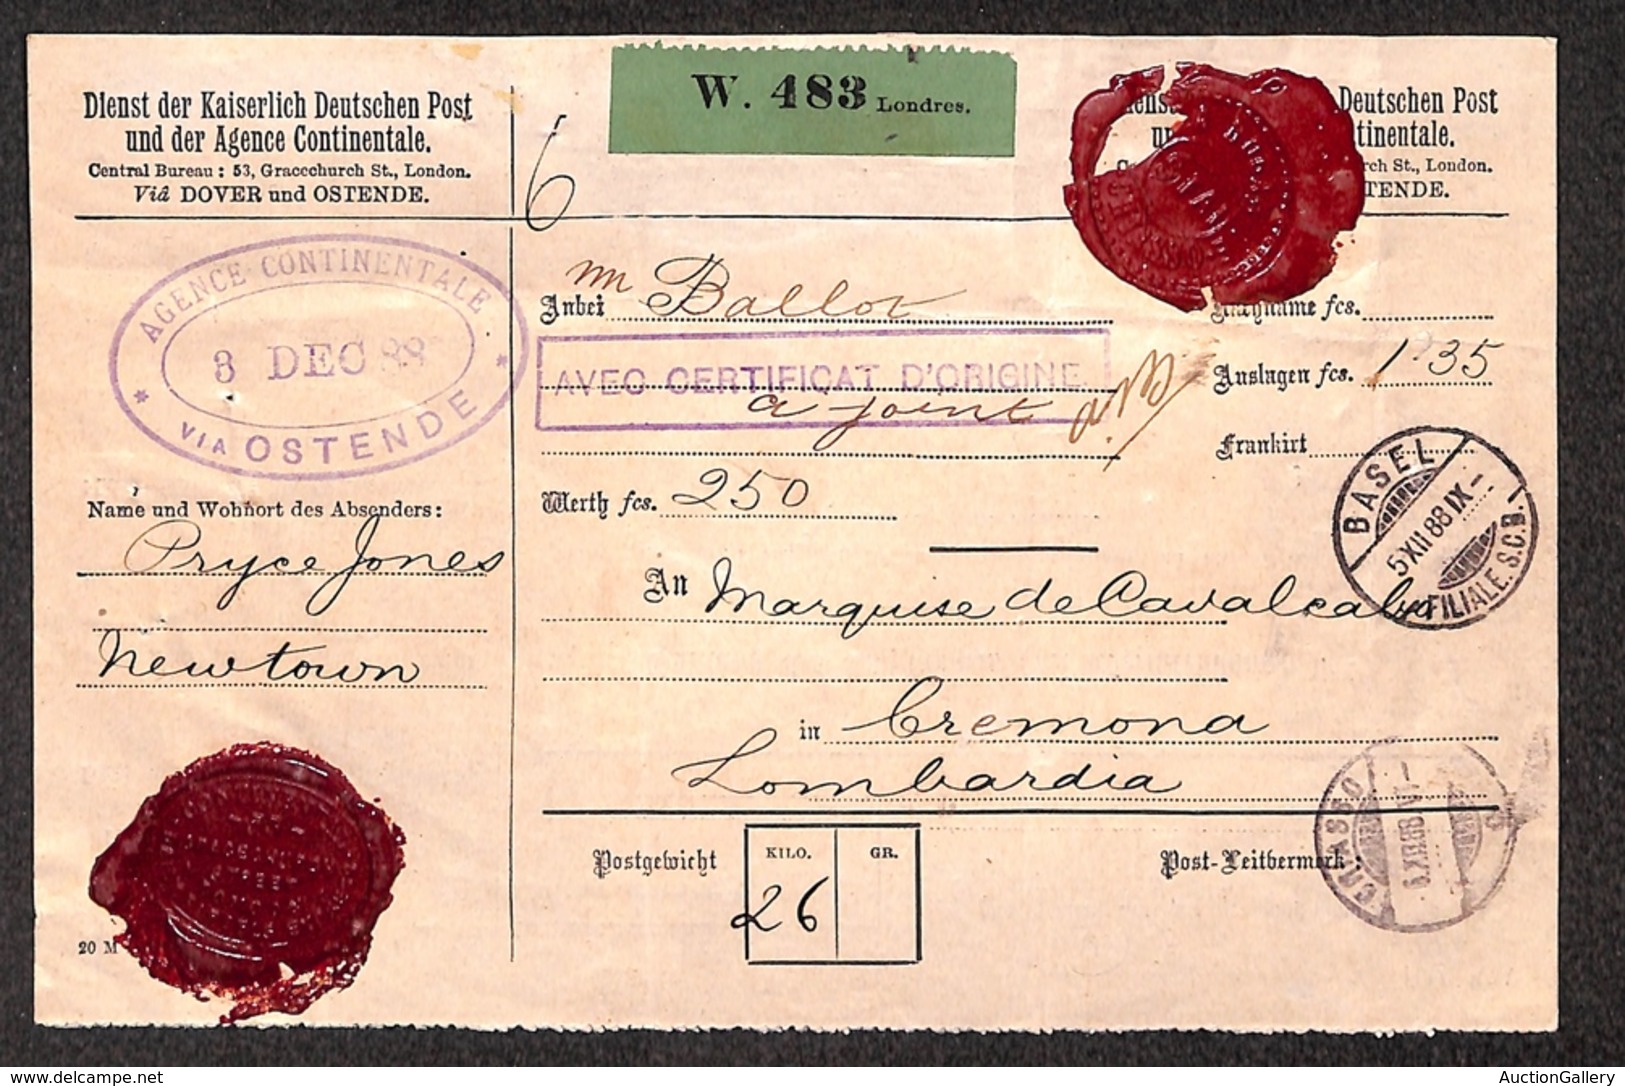 W. 483 Londres.
Dienst der Kaiserlich Deutschen Post
und der Agence Continentale.
Central Bureau : 53, Gracechurch St., London.
Viâ DOVER und OSTENDE.
6
Deutschen Post
tinentale.
rch St., London.
TENDE.
AGENCE CONTINENTALE
3 DEC 88
VIA OSTENDE
Anbei
Ballot
Nachnahme fcs.
AVEC CERTIFICAT D'ORIGINE
a joint
Auslagen fcs. 1.35
Frankirt
BASEL
5 XII 88 IX-
FILIALE S.C.B.
Name und Wohnort des Absenders :
Pryce Jones
Newtown
Werth fcs. 250
An Marquise de Cavalcabo
in Cremona
Lombardia
Postgewicht
KILO. GR.
26
Post-Leitvermerk :
CHIASSO
6 XII 88 VI-
20 M